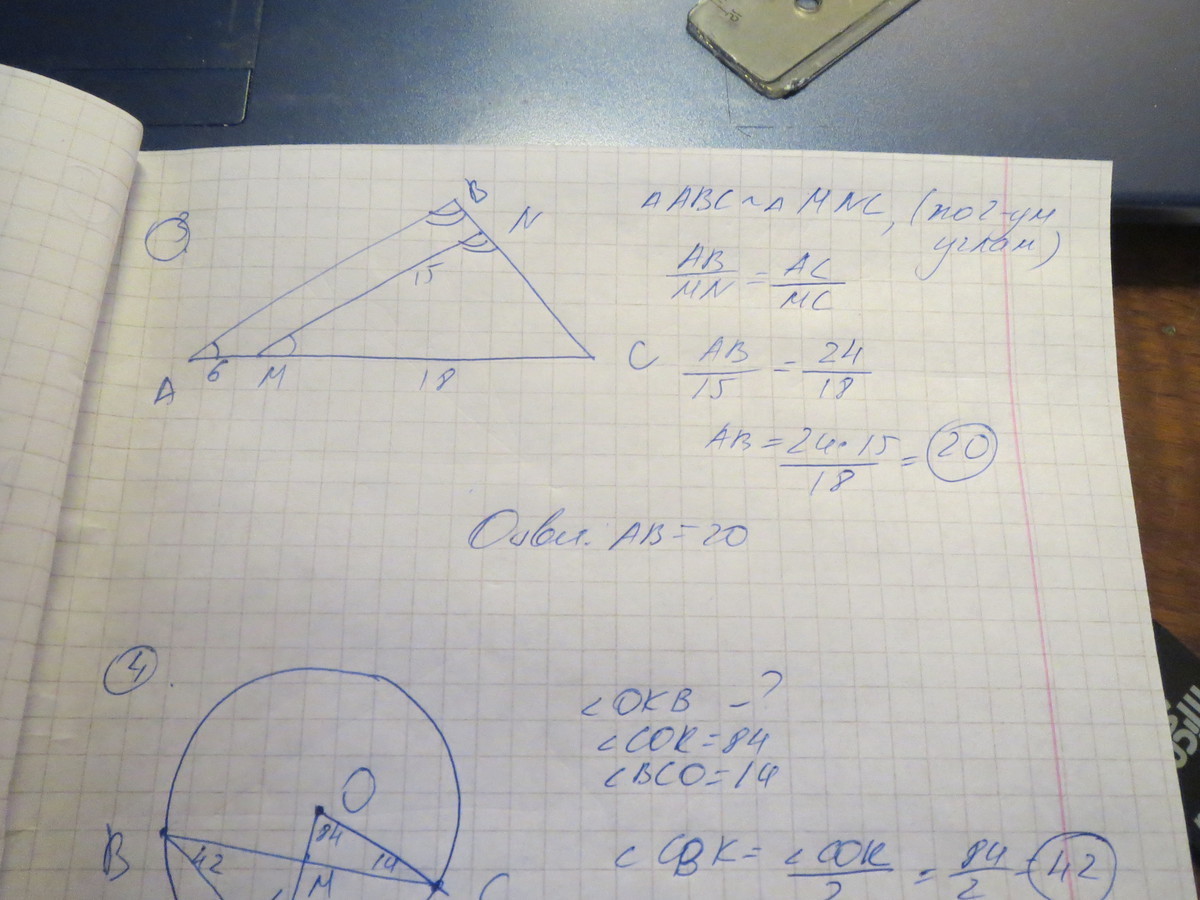 3
B
N
15
A
6
M
18
C
△ABC ~ △MNC, (по 2-ум
углам)
AB/MN = AC/MC
AB/15 = 24/18
AB = 24·15/18 = 20
Ответ: AB = 20
4
∠OKB - ?
∠COK = 84
∠BCO = 14
O
84
B
42
14
M
C
∠CBK = ∠COK/2 = 84/2 = 42